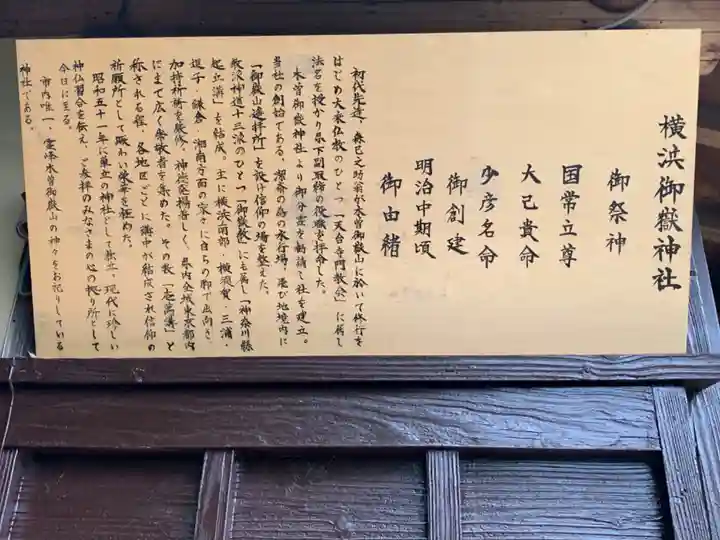 横浜御嶽神社
御祭神
国常立尊
大己貴命
少彦名命
御創建
明治中期頃
御由緒
初代先達、森巳之助翁が木曽御嶽山に於いて修行を
はじめ大衆仏教のひとつ「天台寺門教会」に属し
法名を授かり県下副取締の役職を拝命した。
木曽御嶽神社より御分霊を勧請し社を建立。
当社の創始である。潔斎の為の水行場、並び地境内に
「御嶽山遥拝所」を設け信仰の場を整えた。
教派神道十三派のひとつ「御嶽教」にも属し「神奈川縣
起立講」を結成。主に横浜南部・横須賀・三浦・
逗子・鎌倉・湘南方面の家々に自らの脚で出向き、
加持祈祷を厳修、神徳発揚著しく、県内全域東京都内
にまで広く崇敬者を集めた。その数「 萬講」と
称される程、各地区ごとに講中が結成され信仰の
祈願所として賑わい栄華を極めた。
昭和五十一年に単立の神社として独立、現代に珍しい
神仏習合を伝え、ご参拝のみなさまの心の拠り所として
今日に至る。
市内唯一、霊峰木曽御嶽山の神々をお祀りしている
神社である。